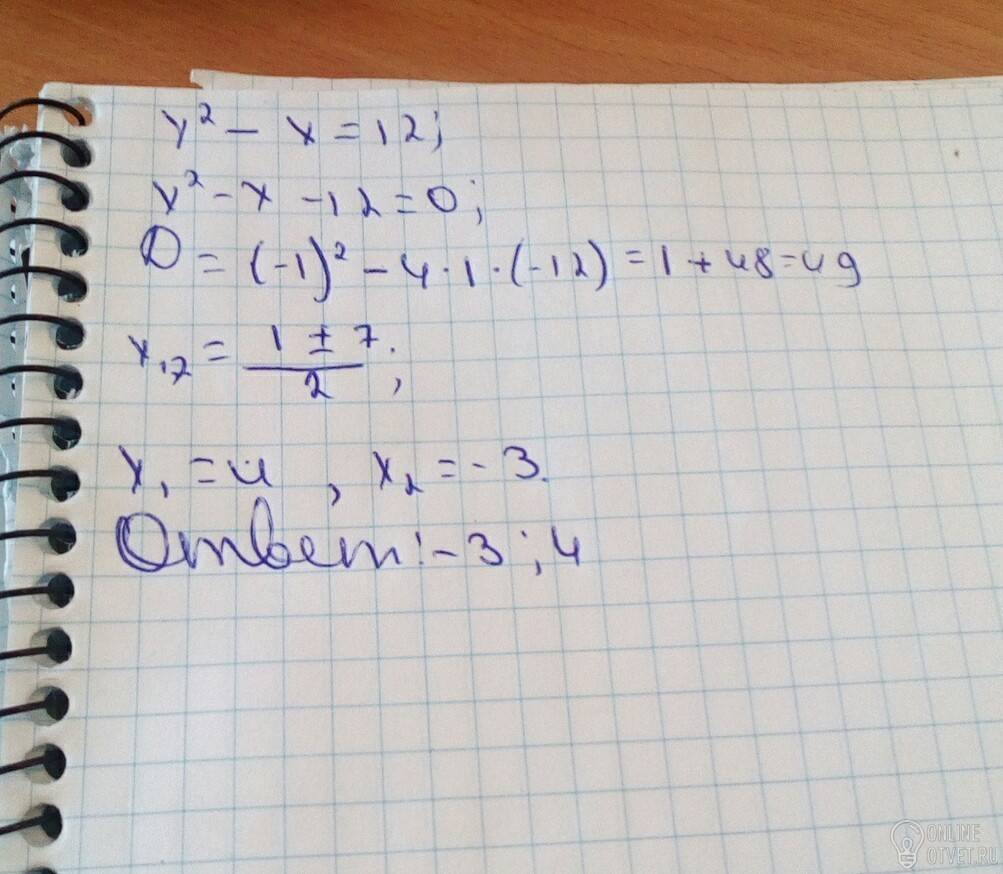 x² - x = 12;
x² - x - 12 = 0;
D = (-1)² - 4 · 1 · (-12) = 1 + 48 = 49
x₁,₂ = (1 ± 7)/2;
x₁ = 4, x₂ = -3.
Ответ: -3; 4
ONLINE
OTVET.RU